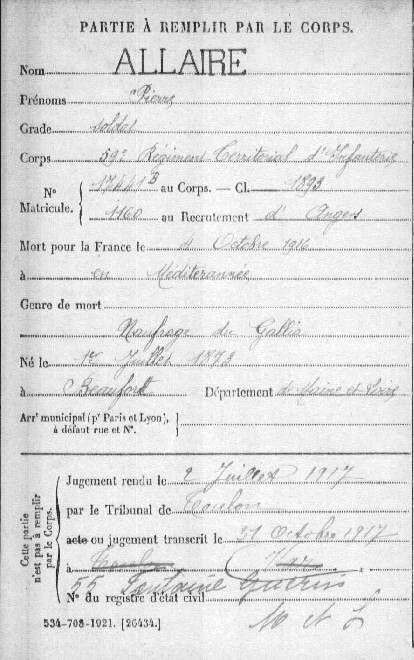 PARTIE À REMPLIR PAR LE CORPS.
Nom ALLAIRE
Prénoms Pierre
Grade soldat
Corps 59e Régiment Territorial d'Infanterie
N° Matricule. { 17441 B au Corps. — Cl. 1893
1160 au Recrutement d' Angers
Mort pour la France le 4 Octobre 1916
à en Méditerannée
Genre de mort
Naufrage du Gallia
Né le 1er Juillet 1873
à Beaufort Département de Maine et Loire
Arrt municipal (pr Paris et Lyon), à défaut rue et N°.
Cette partie n'est pas à remplir par le Corps.
Jugement rendu le 2 Juillet 1917
par le Tribunal de Toulon
acte ou jugement transcrit le 21 Octobre 1917
à Toulon (Var)
55 Fontaine Guérin
N° du registre d'état civil M et L
534-708-1921. [26434.]